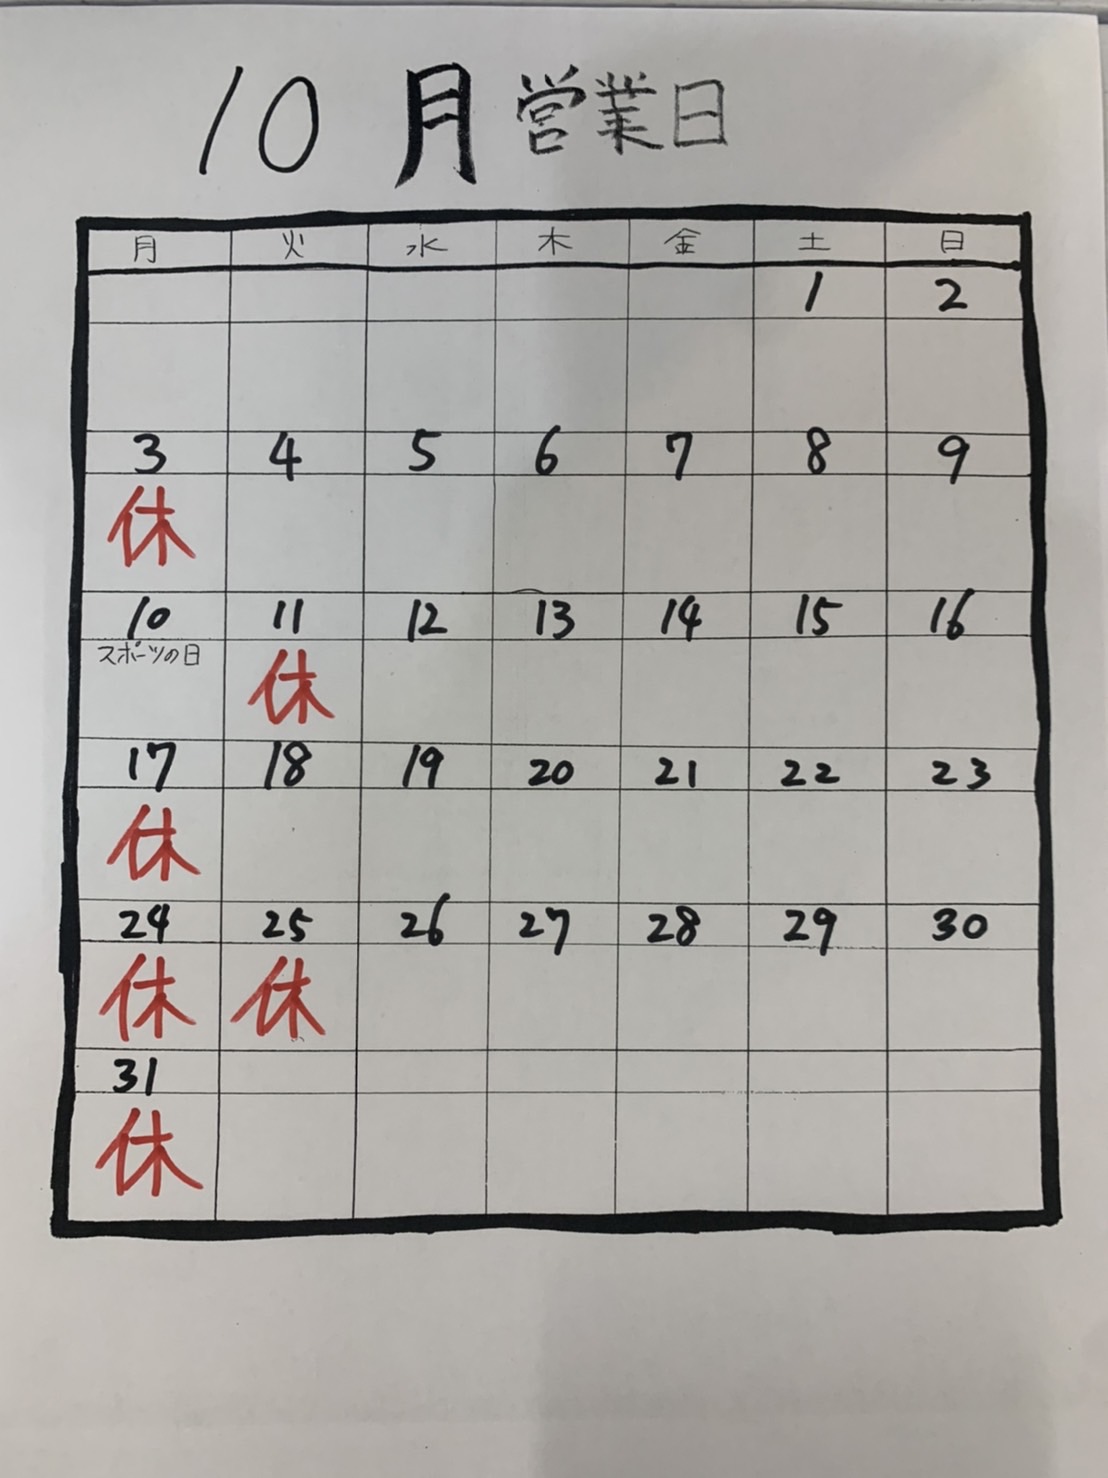 10月営業日
月 火 水 木 金 土 日
1 2
3 4 5 6 7 8 9
休
10 11 12 13 14 15 16
スポーツの日
休
17 18 19 20 21 22 23
休
24 25 26 27 28 29 30
休 休
31
休